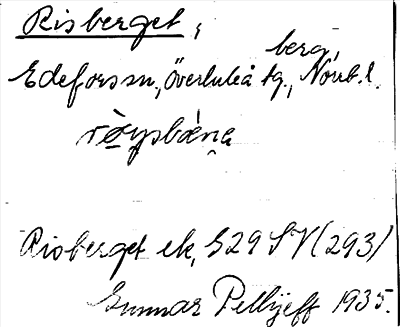 Risberget,
berg,
Edefors sn, Överluleå tg., Norrb. l.
Risberget ek, S29 SV (293)
Gunnar Pellijeff 1935.